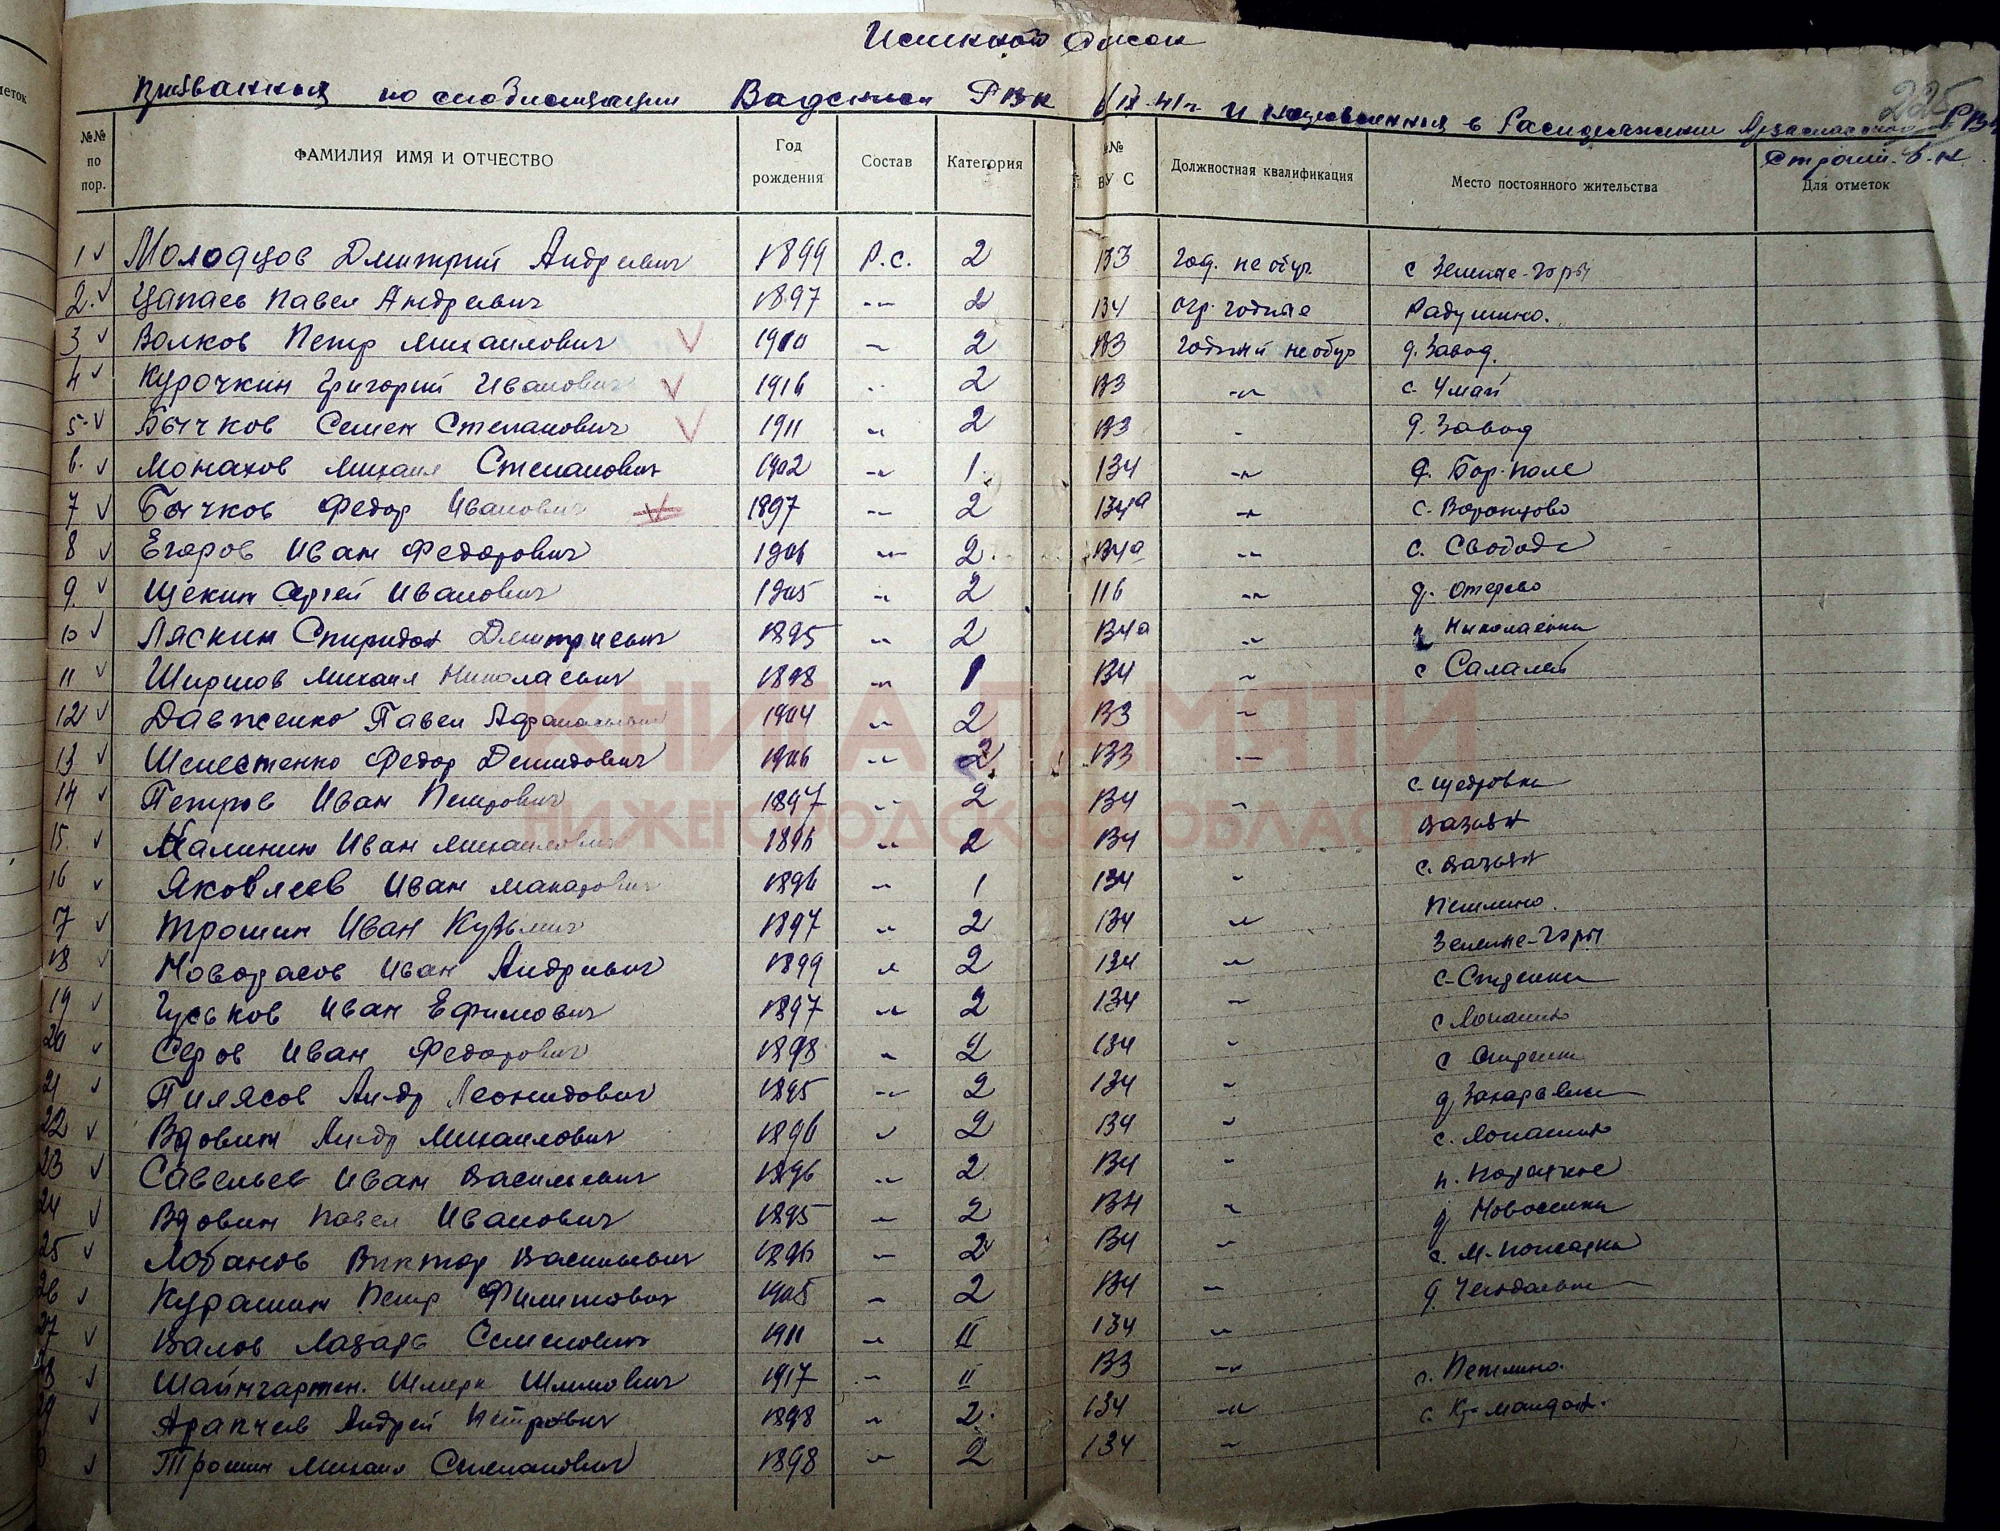 Именной список
призванных по мобилизации Вадским РВК 6/IX-41 г. и направленных в Распоряжение Арзамасского РВК
225
Строит. б-н
№№ по пор. ФАМИЛИЯ ИМЯ И ОТЧЕСТВО Год рождения Состав Категория №№ ВУС Должностная квалификация Место постоянного жительства Для отметок
1 Молодцов Дмитрий Андреевич 1899 Р.с. 2 133 год. не обуч. с Зеленые-горы
2. Цапаев Павел Андреевич 1897 -"- 2 134 огр. годные Радушино.
3 Волков Петр Михаилович 1910 -"- 2 133 годный не обуч д. Завод.
4 Курочкин Григорий Иванович 1916 -"- 2 133 -"- с. Умай
5. Бычков Семен Степанович 1911 -"- 2 133 - д. Завод
6. Монахов Михаил Степанович 1902 -"- 1. 134 -"- д. Бор. поле
7 Бычков Федор Иванович 1897 -"- 2 134а -"- с. Воронцово
8 Егоров Иван Федорович 1906 -"- 2. 134а -"- с. Свобода
9. Щекин Сергей Иванович 1905 -"- 2 116 -"- д. Отерево
10 Ляскин Спиридон Дмитриевич 1895 -"- 2 134а -"- Николаевка
11 Ширшов Михаил Николаевич 1898 -"- 1 134 -"- с Салалей
12 Давженко Павел Афанасьевич 1904 -"- 2 133 -"-
13 Шелестенко Федор Демидович 1906 -"- 2. 133 -"-
14 Петров Иван Петрович 1897 -"- 2 134 -"- с. Щедровка
15 Калинин Иван Михаилович 1896 -"- 2 134 Вазьян
16 Яковлев Иван Макарович 1896 -"- 1 134 -"- с. Вазьян
17 Трошин Иван Кузьмич 1897 -"- 2 134 -"- Петлино.
18 Новорасов Иван Андреевич 1899 -"- 2 134 -"- Зеленые-горы
19 Гуськов Иван Ефимович 1897 -"- 2 134 -"- с-Студенки
20 Серов Иван Федорович 1898 -"- 2 134 -"- с Лопатино
21 Пилясов Андр Леонидович 1895 -"- 2 134 -"- с Студенки
22 Вдовин Андр Михаилович 1896 -"- 2 134 -"- д Захаровка
23 Савельев Иван Васильевич 1896 -"- 2 134 -"- с. Лопатино
24 Вдовин Павел Иванович 1895 -"- 2 134 -"- п.
25 Лобанов Виктор Васильевич 1896 -"- 2 134 -"- д Новоселки
26 Курашин Петр Филипович 1905 -"- 2 134 -"- с. М-Пожарки
27 Валов Лазарь Семенович 1911 -"- II 134 -"- д.
28 Шайнгартен. Шмерк Шлимович 1917 -"- II 133 -"- с. Петлино.
29 Арапчев Андрей Петрович 1898 -"- 2. 134 -"- с. Кр-Майдан.
Трошин Михаил Степанович 1898 -"- 2 134 -"-
КНИГА ПАМЯТИ
НИЖЕГОРОДСКОЙ ОБЛАСТИ